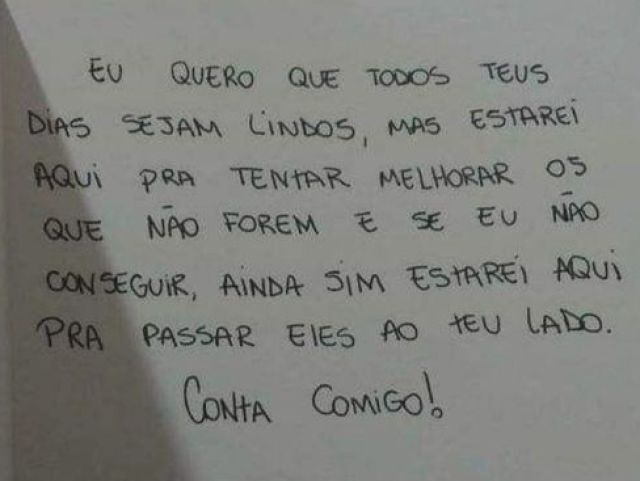 EU QUERO QUE TODOS TEUS
DIAS SEJAM LINDOS, MAS ESTAREI
AQUI PRA TENTAR MELHORAR OS
QUE NÃO FOREM E SE EU NÃO
CONSEGUIR, AINDA SIM ESTAREI AQUI
PRA PASSAR ELES AO TEU LADO.
CONTA COMIGO!